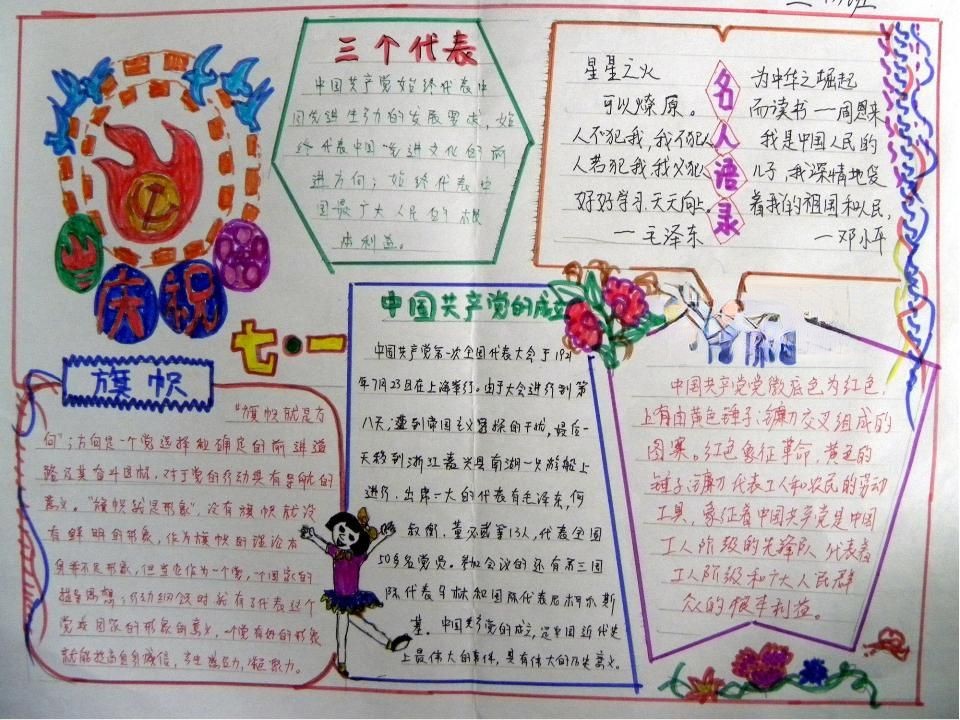 庆祝
七·一
三个代表
中国共产党始终代表中
国先进生产力的发展要求，始
终代表中国先进文化的前
进方向；始终代表中
国最广大人民的根
本利益。
名人语录
星星之火
可以燎原。
人不犯我，我不犯人
人若犯我，我必犯人
好好学习天天向上。
一毛泽东
为中华之崛起
而读书一周恩来
我是中国人民的
儿子，我深情地爱
着我的祖国和人民，
一邓小平
旗帜
“旗帜就是方
向”；方向是一个党选择和确定的前进道
路及其奋斗目标，对于党的行动具有导航的
意义。“旗帜就是形象”，没有旗帜就没
有鲜明的形象，作为旗帜的理论本
身并不是形象，但当它作为一个党，一个国家的
指导思想；行动纲领时就有了代表这个
党或国家的形象的意义，一个党有好的形象
就能提高自身诚信，产生感召力，凝聚力。
中国共产党的成立
中国共产党第一次全国代表大会于1921
年7月23日在上海举行。由于大会进行到第
八天，遭到帝国主义密探的干扰，最后一
天移到浙江嘉兴县南湖一只游船上
进行。出席一大的代表有毛泽东，何
叔衡，董必武等13人，代表全国
50多名党员。参加会议的还有第三国
际代表马林和国际代表尼柯尔斯
基。中国共产党的成立，是中国近代史
上最伟大的事件，具有伟大的历史意义。
中国共产党党徽底色为红色
上有由黄色锤子；镰刀交叉组成的
图案。红色象征革命，黄色的
锤子；镰刀代表工人和农民的劳动
工具，象征着中国共产党是中国
工人阶级的先锋队代表着
工人阶级和广大人民群
众的根本利益。